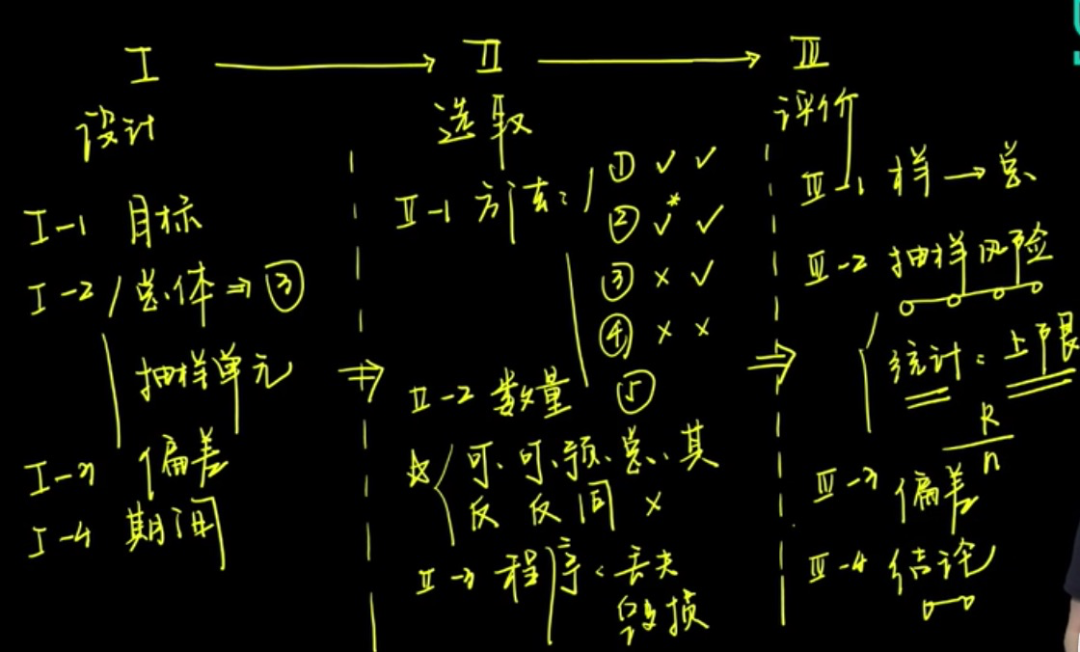 I → II → III
设计 选取 评价
I-1 目标
I-2 总体 ⇒ ③
抽样单元
I-3 偏差
I-4 期间
II-1 方法:
① ✓ ✓
② ✓* ✓
③ × ✓
④ × ×
⑤
II-2 数量
☆ 可、可、预、总、其
反 反 同 ×
II-3 程序: 丢失
毁损
III-1 样 → 总
III-2 抽样风险
统计: 上限
R/n
III-3 偏差
III-4 结论